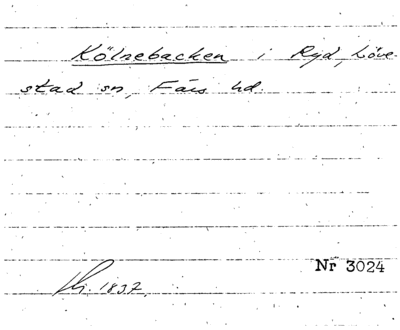 Kölnebacken i Ryd, Löve-
stad sn, Färs hd.
Nr 3024
1837.